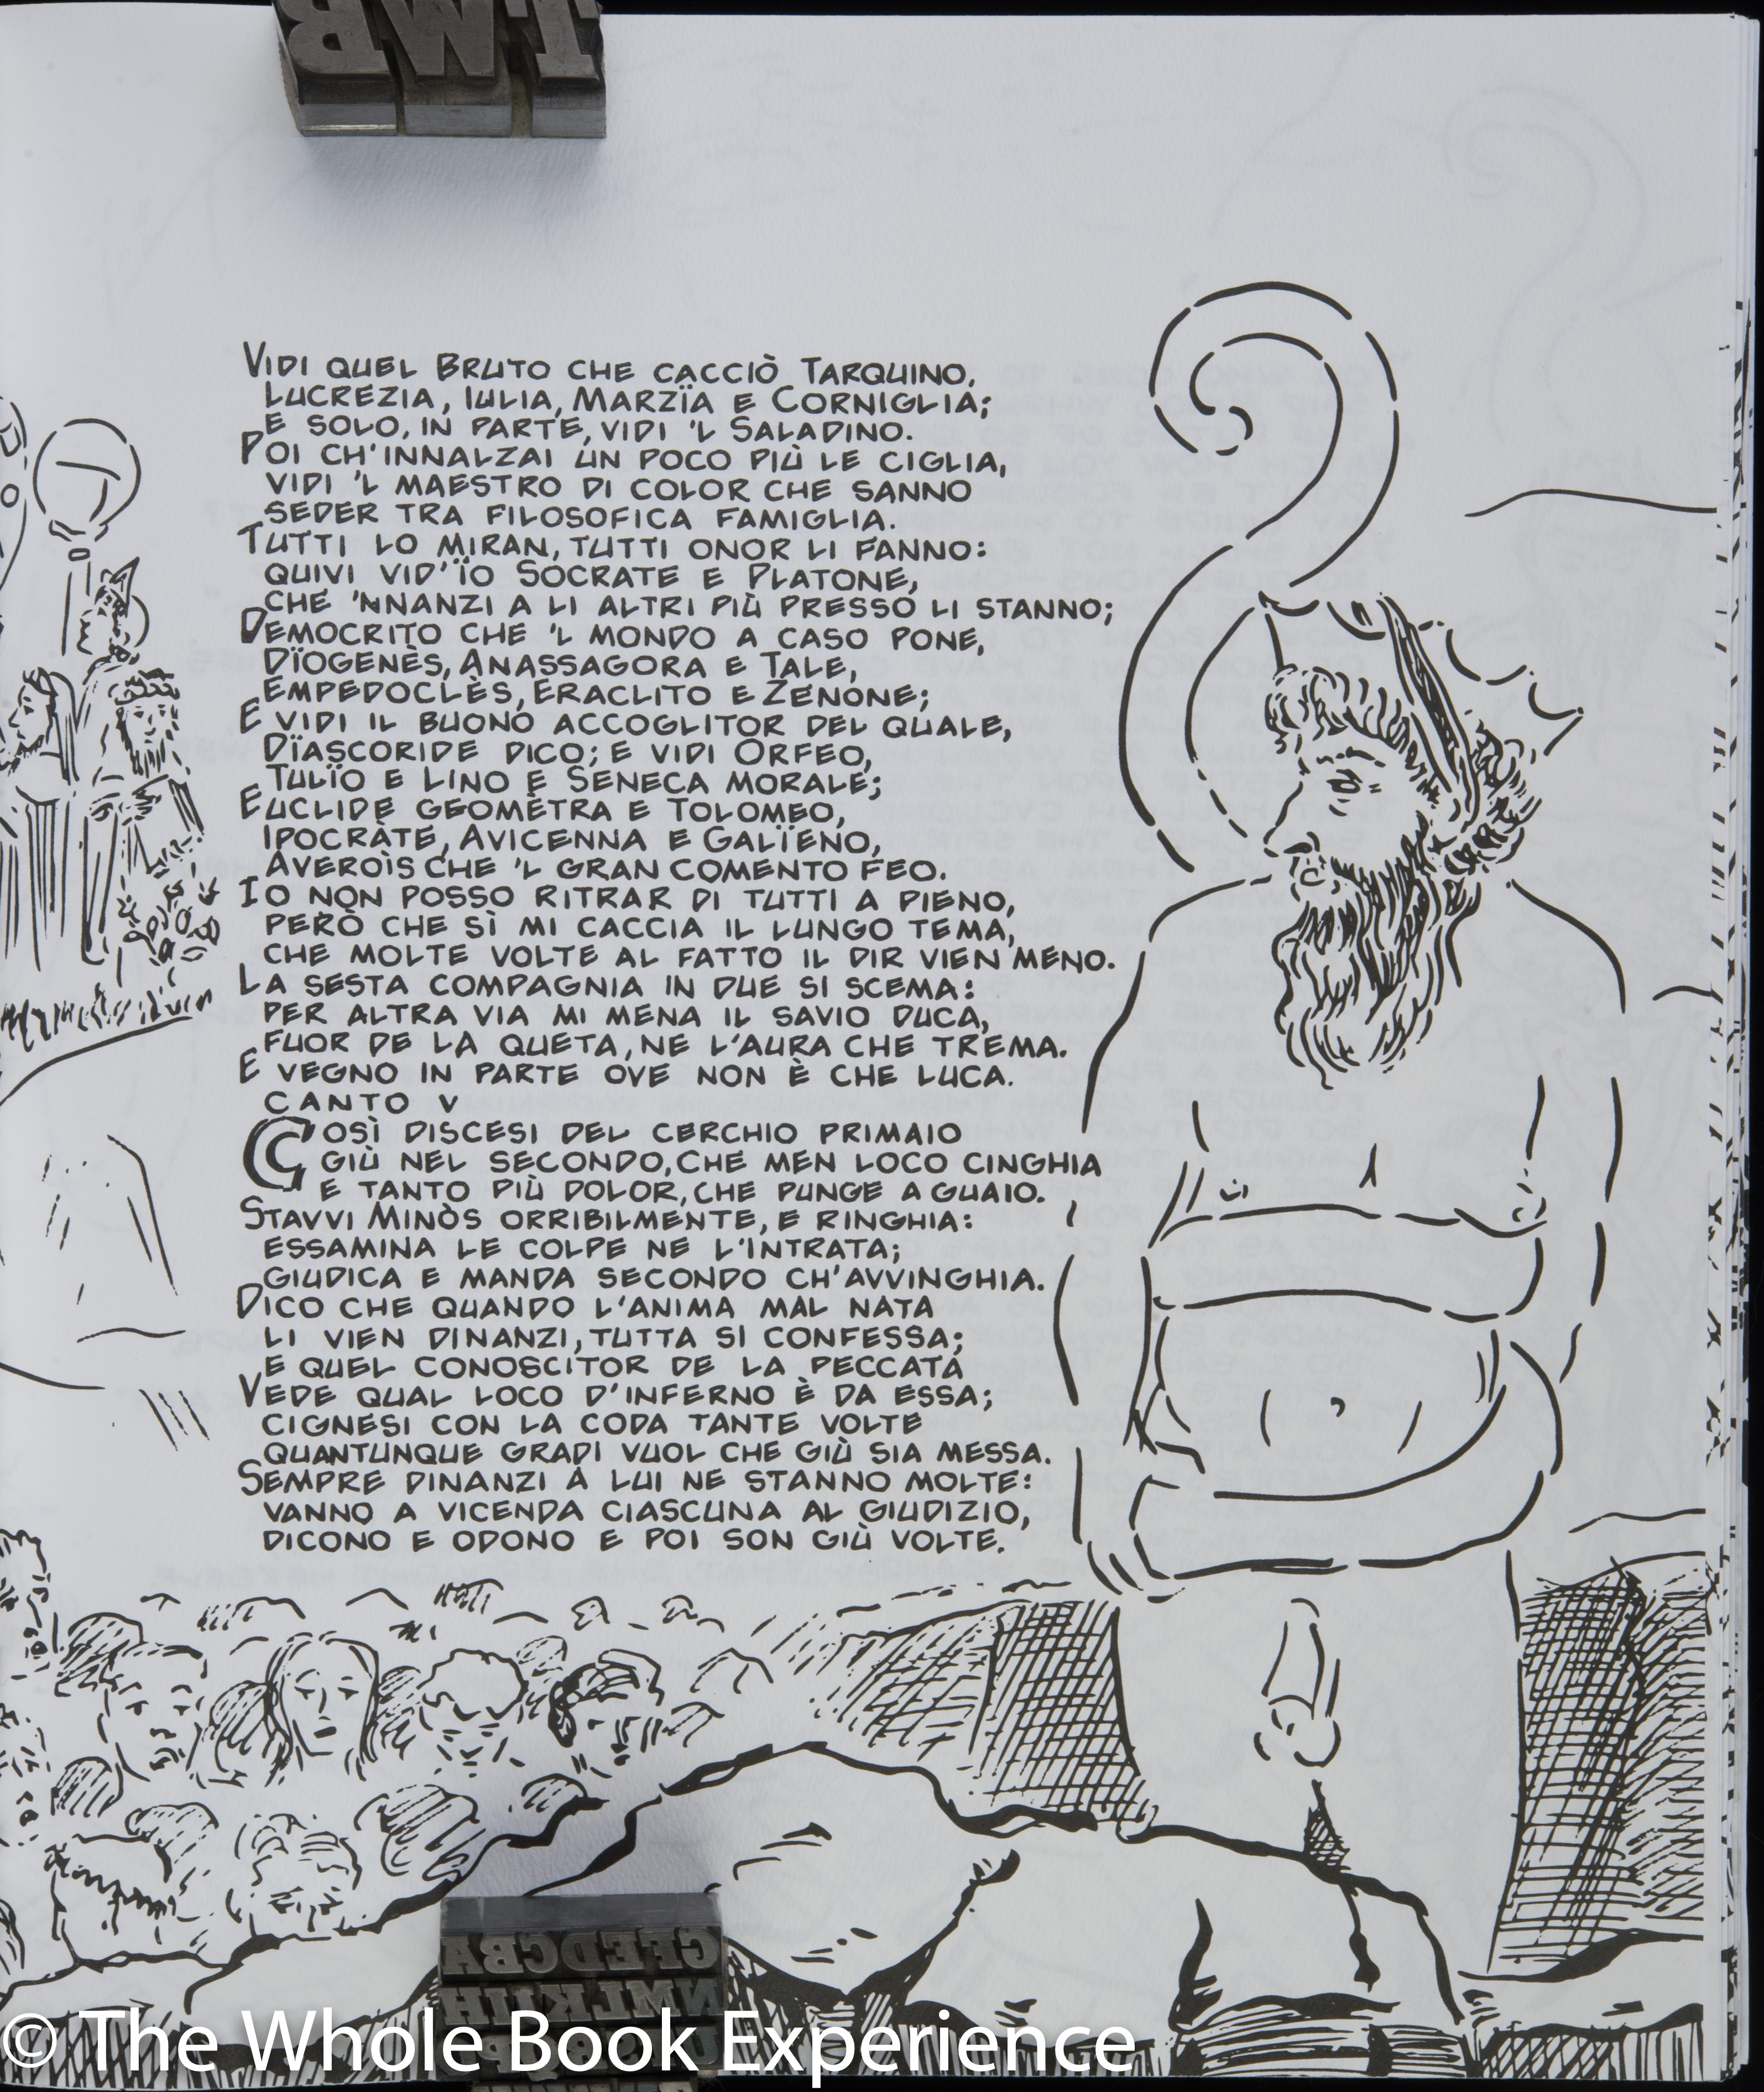 VIDI QUEL BRUTO CHE CACCIÒ TARQUINO,
LUCREZIA, IULIA, MARZÏA E CORNIGLIA;
E SOLO, IN PARTE, VIDI 'L SALADINO.
POI CH'INNALZAI UN POCO PIÙ LE CIGLIA,
VIDI 'L MAESTRO DI COLOR CHE SANNO
SEDER TRA FILOSOFICA FAMIGLIA.
TUTTI LO MIRAN, TUTTI ONOR LI FANNO:
QUIVI VID'ÏO SOCRATE E PLATONE,
CHE 'NNANZI A LI ALTRI PIÙ PRESSO LI STANNO;
DEMOCRITO CHE 'L MONDO A CASO PONE,
DÏOGENÈS, ANASSAGORA E TALE,
EMPEDOCLÈS, ERACLITO E ZENONE;
E VIDI IL BUONO ACCOGLITOR DEL QUALE,
DÏASCORIDE DICO; E VIDI ORFEO,
TULÏO E LINO E SENECA MORALE;
EUCLIDE GEOMÈTRA E TOLOMEO,
IPOCRÀTE, AVICENNA E GALÏENO,
AVEROÌS CHE 'L GRAN COMENTO FEO.
IO NON POSSO RITRAR DI TUTTI A PIENO,
PERÒ CHE SÌ MI CACCIA IL LUNGO TEMA,
CHE MOLTE VOLTE AL FATTO IL DIR VIEN MENO.
LA SESTA COMPAGNIA IN DUE SI SCEMA:
PER ALTRA VIA MI MENA IL SAVIO DUCA,
FUOR DE LA QUETA, NE L'AURA CHE TREMA.
E VEGNO IN PARTE OVE NON È CHE LUCA.
CANTO V
COSÌ DISCESI DEL CERCHIO PRIMAIO
GIÙ NEL SECONDO, CHE MEN LOCO CINGHIA
E TANTO PIÙ DOLOR, CHE PUNGE A GUAIO.
STAVVI MINÒS ORRIBILMENTE, E RINGHIA:
ESSAMINA LE COLPE NE L'INTRATA;
GIUDICA E MANDA SECONDO CH'AVVINGHIA.
DICO CHE QUANDO L'ANIMA MAL NATA
LI VIEN DINANZI, TUTTA SI CONFESSA;
E QUEL CONOSCITOR DE LA PECCATA
VEDE QUAL LOCO D'INFERNO È DA ESSA;
CIGNESI CON LA CODA TANTE VOLTE
QUANTUNQUE GRADI VUOL CHE GIÙ SIA MESSA.
SEMPRE DINANZI A LUI NE STANNO MOLTE:
VANNO A VICENDA CIASCUNA AL GIUDIZIO,
DICONO E ODONO E POI SON GIÙ VOLTE.
© The Whole Book Experience